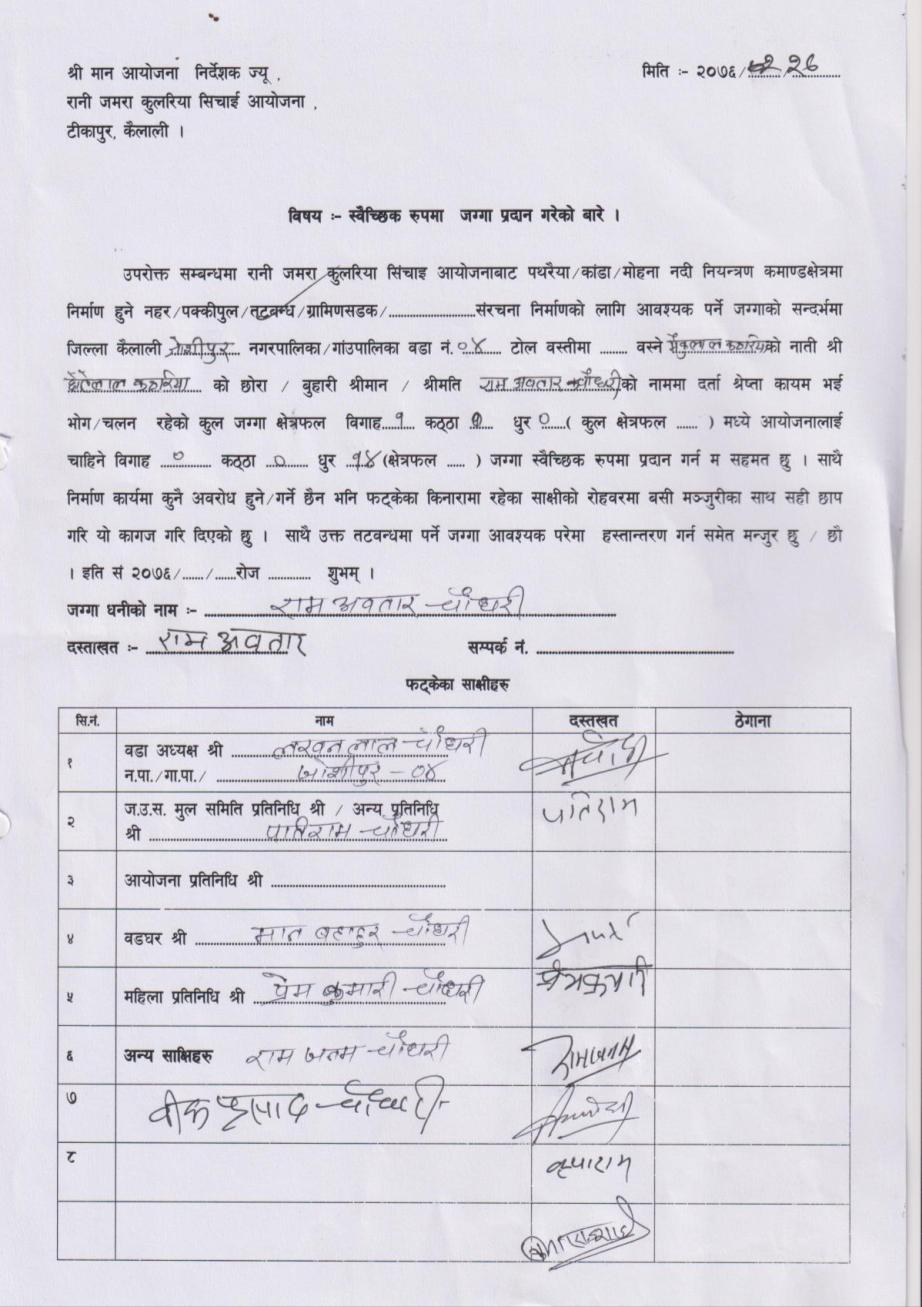 श्री मान आयोजना निर्देशक ज्यू ,
मिति :- २०७६/०२/२६
रानी जमरा कुलरिया सिचाई आयोजना ,
टीकापुर, कैलाली ।
विषय :- स्वैच्छिक रुपमा जग्गा प्रदान गरेको बारे ।
उपरोक्त सम्बन्धमा रानी जमरा कुलरिया सिंचाइ आयोजनाबाट पथरैया/कांडा/मोहना नदी नियन्त्रण कमाण्डक्षेत्रमा
निर्माण हुने नहर/पक्कीपुल/तटबन्ध/ग्रामिणसडक/..............................संरचना निर्माणको लागि आवश्यक पर्ने जग्गाको सन्दर्भमा
जिल्ला कैलाली जोशीपुर नगरपालिका/गांउपालिका वडा नं.०४ टोल वस्तीमा ........ वस्ने को नाती श्री
छोटेलाल कठरिया को छोरा / बुहारी श्रीमान / श्रीमति राम अवतार चौधरीको नाममा दर्ता श्रेष्ता कायम भई
भोग/चलन रहेको कुल जग्गा क्षेत्रफल विगाह..१.. कठ्ठा धुर ०...( कुल क्षेत्रफल ...... ) मध्ये आयोजनालाई
चाहिने विगाह ..०........ कठ्ठा ...०.... धुर .१४.(क्षेत्रफल ..... ) जग्गा स्वैच्छिक रुपमा प्रदान गर्न म सहमत छु । साथै
निर्माण कार्यमा कुनै अवरोध हुने/गर्ने छैन भनि फट्केका किनारामा रहेका साक्षीको रोहवरमा बसी मञ्जुरीका साथ सही छाप
गरि यो कागज गरि दिएको छु । साथै उक्त तटवन्धमा पर्ने जग्गा आवश्यक परेमा हस्तान्तरण गर्न समेत मन्जुर छु / छौ
। इति सं २०७६/....../......रोज ............ शुभम् ।
जग्गा धनीको नाम :- राम अवतार चौधरी
दस्ताखत :- राम अवतार सम्पर्क नं. ..................................................
फट्केका साक्षीहरु
सि.नं. नाम दस्तखत ठेगाना
१ वडा अध्यक्ष श्री लखन लाल चौधरी
न.पा./गा.पा./ जोशीपुर - ०४
२ ज.उ.स. मुल समिति प्रतिनिधि श्री / अन्य प्रतिनिधि पतिराम
श्री पातिराम चौधरी
३ आयोजना प्रतिनिधि श्री ..........................................
४ वडघर श्री मान बहादुर चौधरी
५ महिला प्रतिनिधि श्री प्रेम कुमारी चौधरी प्रेमकुमारी
६ अन्य साक्षिहरु राम जनम चौधरी रामजनम
७ चौधरी
८ कृपाराम